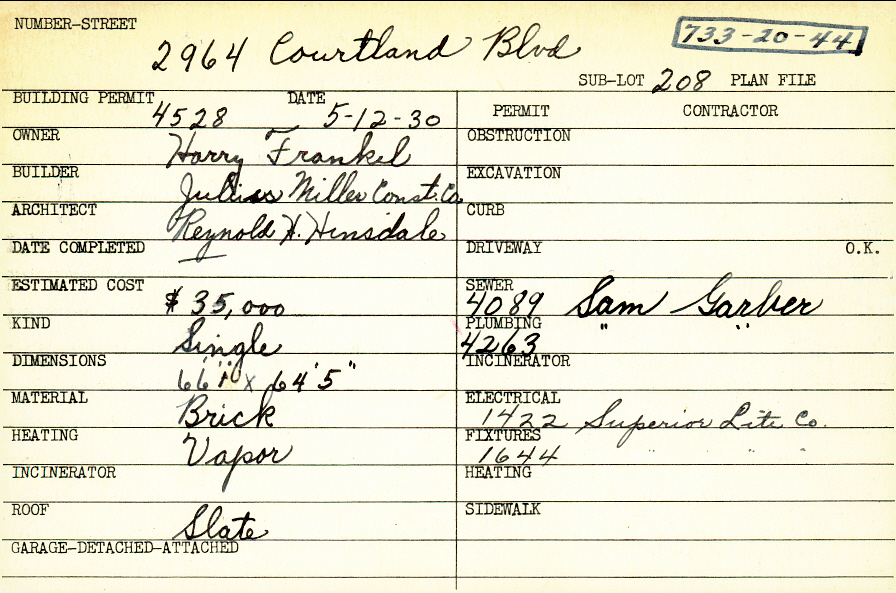 NUMBER-STREET
2964 Courtland Blvd
733-20-44
SUB-LOT 208 PLAN FILE
BUILDING PERMIT 4528 DATE 5-12-30
OWNER Harry Frankel
BUILDER Julius Miller Const. Co.
ARCHITECT Reynold H. Hinsdale
DATE COMPLETED —
ESTIMATED COST $ 35,000
KIND Single
DIMENSIONS 66'1" x 64'5"
MATERIAL Brick
HEATING Vapor
INCINERATOR
ROOF Slate
GARAGE-DETACHED-ATTACHED
PERMIT CONTRACTOR
OBSTRUCTION
EXCAVATION
CURB
DRIVEWAY O.K.
SEWER 4089 Sam Garber
PLUMBING 4263 " "
INCINERATOR
ELECTRICAL 1422 Superior Lite Co.
FIXTURES 1644 " " "
HEATING
SIDEWALK